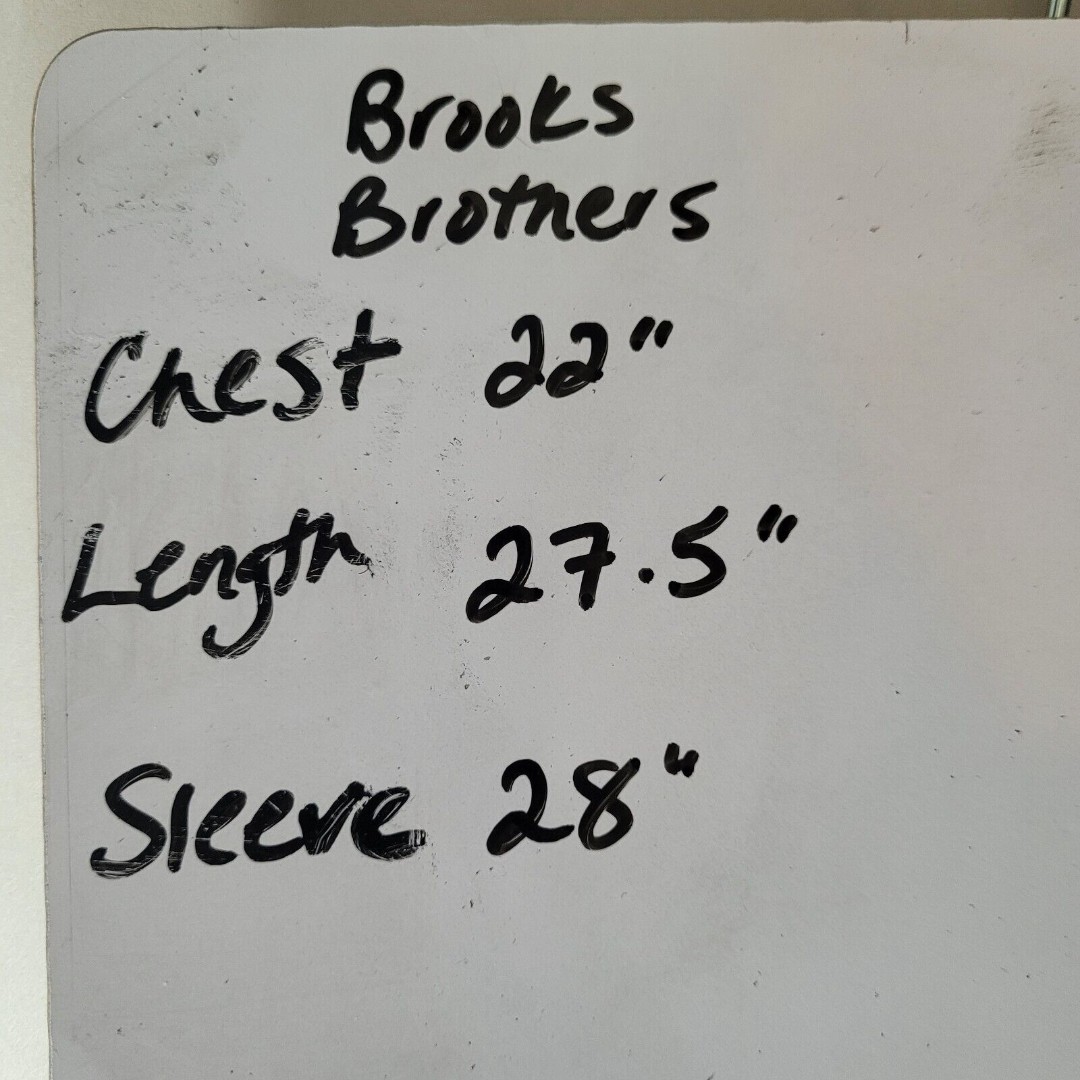 Brooks
Brothers
Chest 22"
Length 27.5"
Sleeve 28"